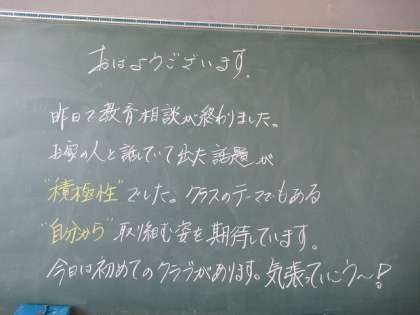 おはようございます。
昨日で教育相談が終わりました。
お家の人と話していて出た話題が
"積極性"でした。クラスのテーマでもある
"自分から"取り組む姿を期待しています。
今日は初めてのクラブがあります。気張っていこう〜!